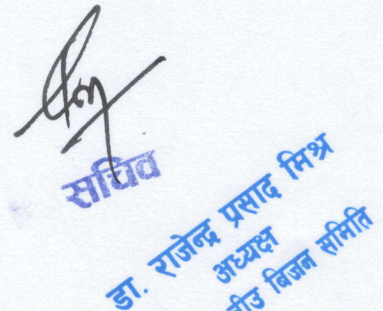 सचिव
डा. राजेन्द्र प्रसाद मिश्र
अध्यक्ष
बिजन समिति